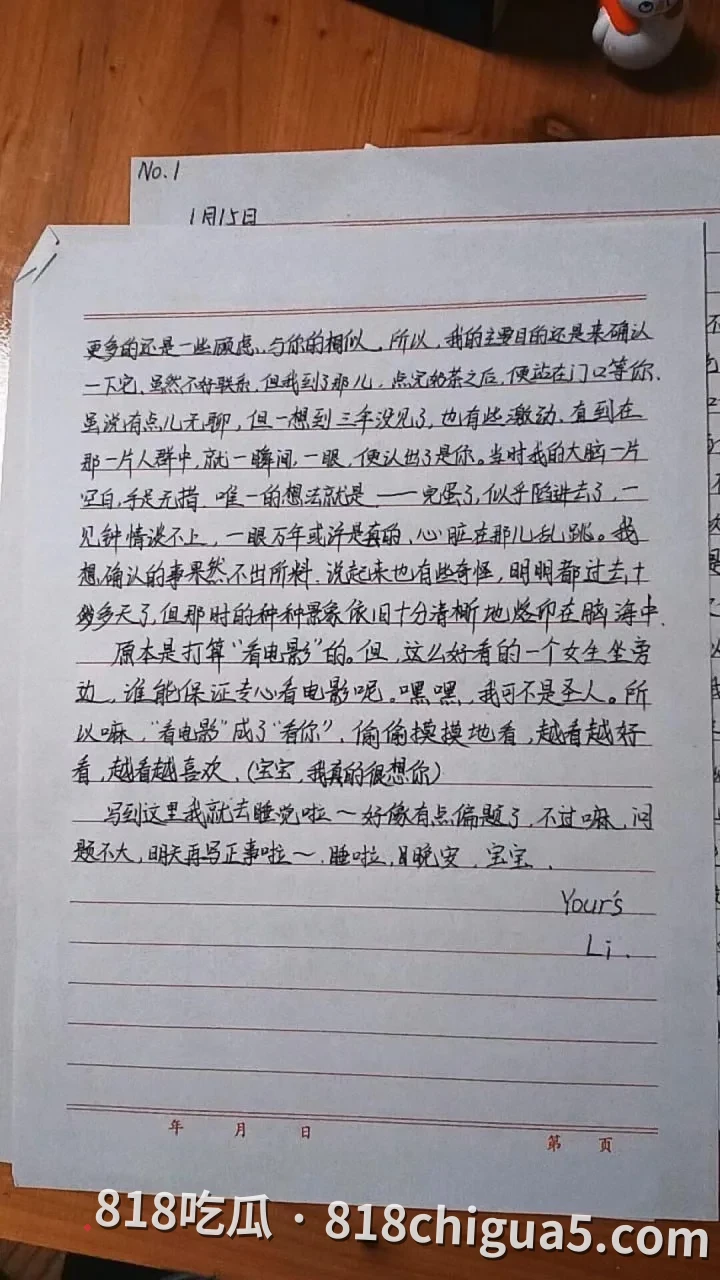 No.1
1月15日
更多的还是一些顾虑,与你的相似。所以,我的主要目的还是来确认
一下它,虽然不好联系,但我到了那儿,点完奶茶之后,便站在门口等你.
虽说有点儿无聊,但一想到三年没见了,也有些激动.直到在
那一片人群中,就一瞬间,一眼,便认出了是你。当时我的大脑一片
空白,手足无措.唯一的想法就是——完蛋了,似乎陷进去了,一
见钟情谈不上,一眼万年或许是真的,心脏在那儿乱跳。我
想确认的事果然不出所料.说起来也有些奇怪,明明都过去十
多天了,但那时的种种景象依旧十分清晰地烙印在脑海中.
原本是打算“看电影”的。但,这么好看的一个女生坐旁
边,谁能保证专心看电影呢。嘿嘿,我可不是圣人。所
以嘛,“看电影”成了“看你”,偷偷摸摸地看,越看越好
看,越看越喜欢.(宝宝,我真的很想你)
写到这里我就去睡觉啦~好像有点偏题了,不过嘛,问
题不大,明天再写正事啦~.睡啦,晚安,宝宝.
Your's
Li.
年 月 日
第 页
818吃瓜·818chigua5.com